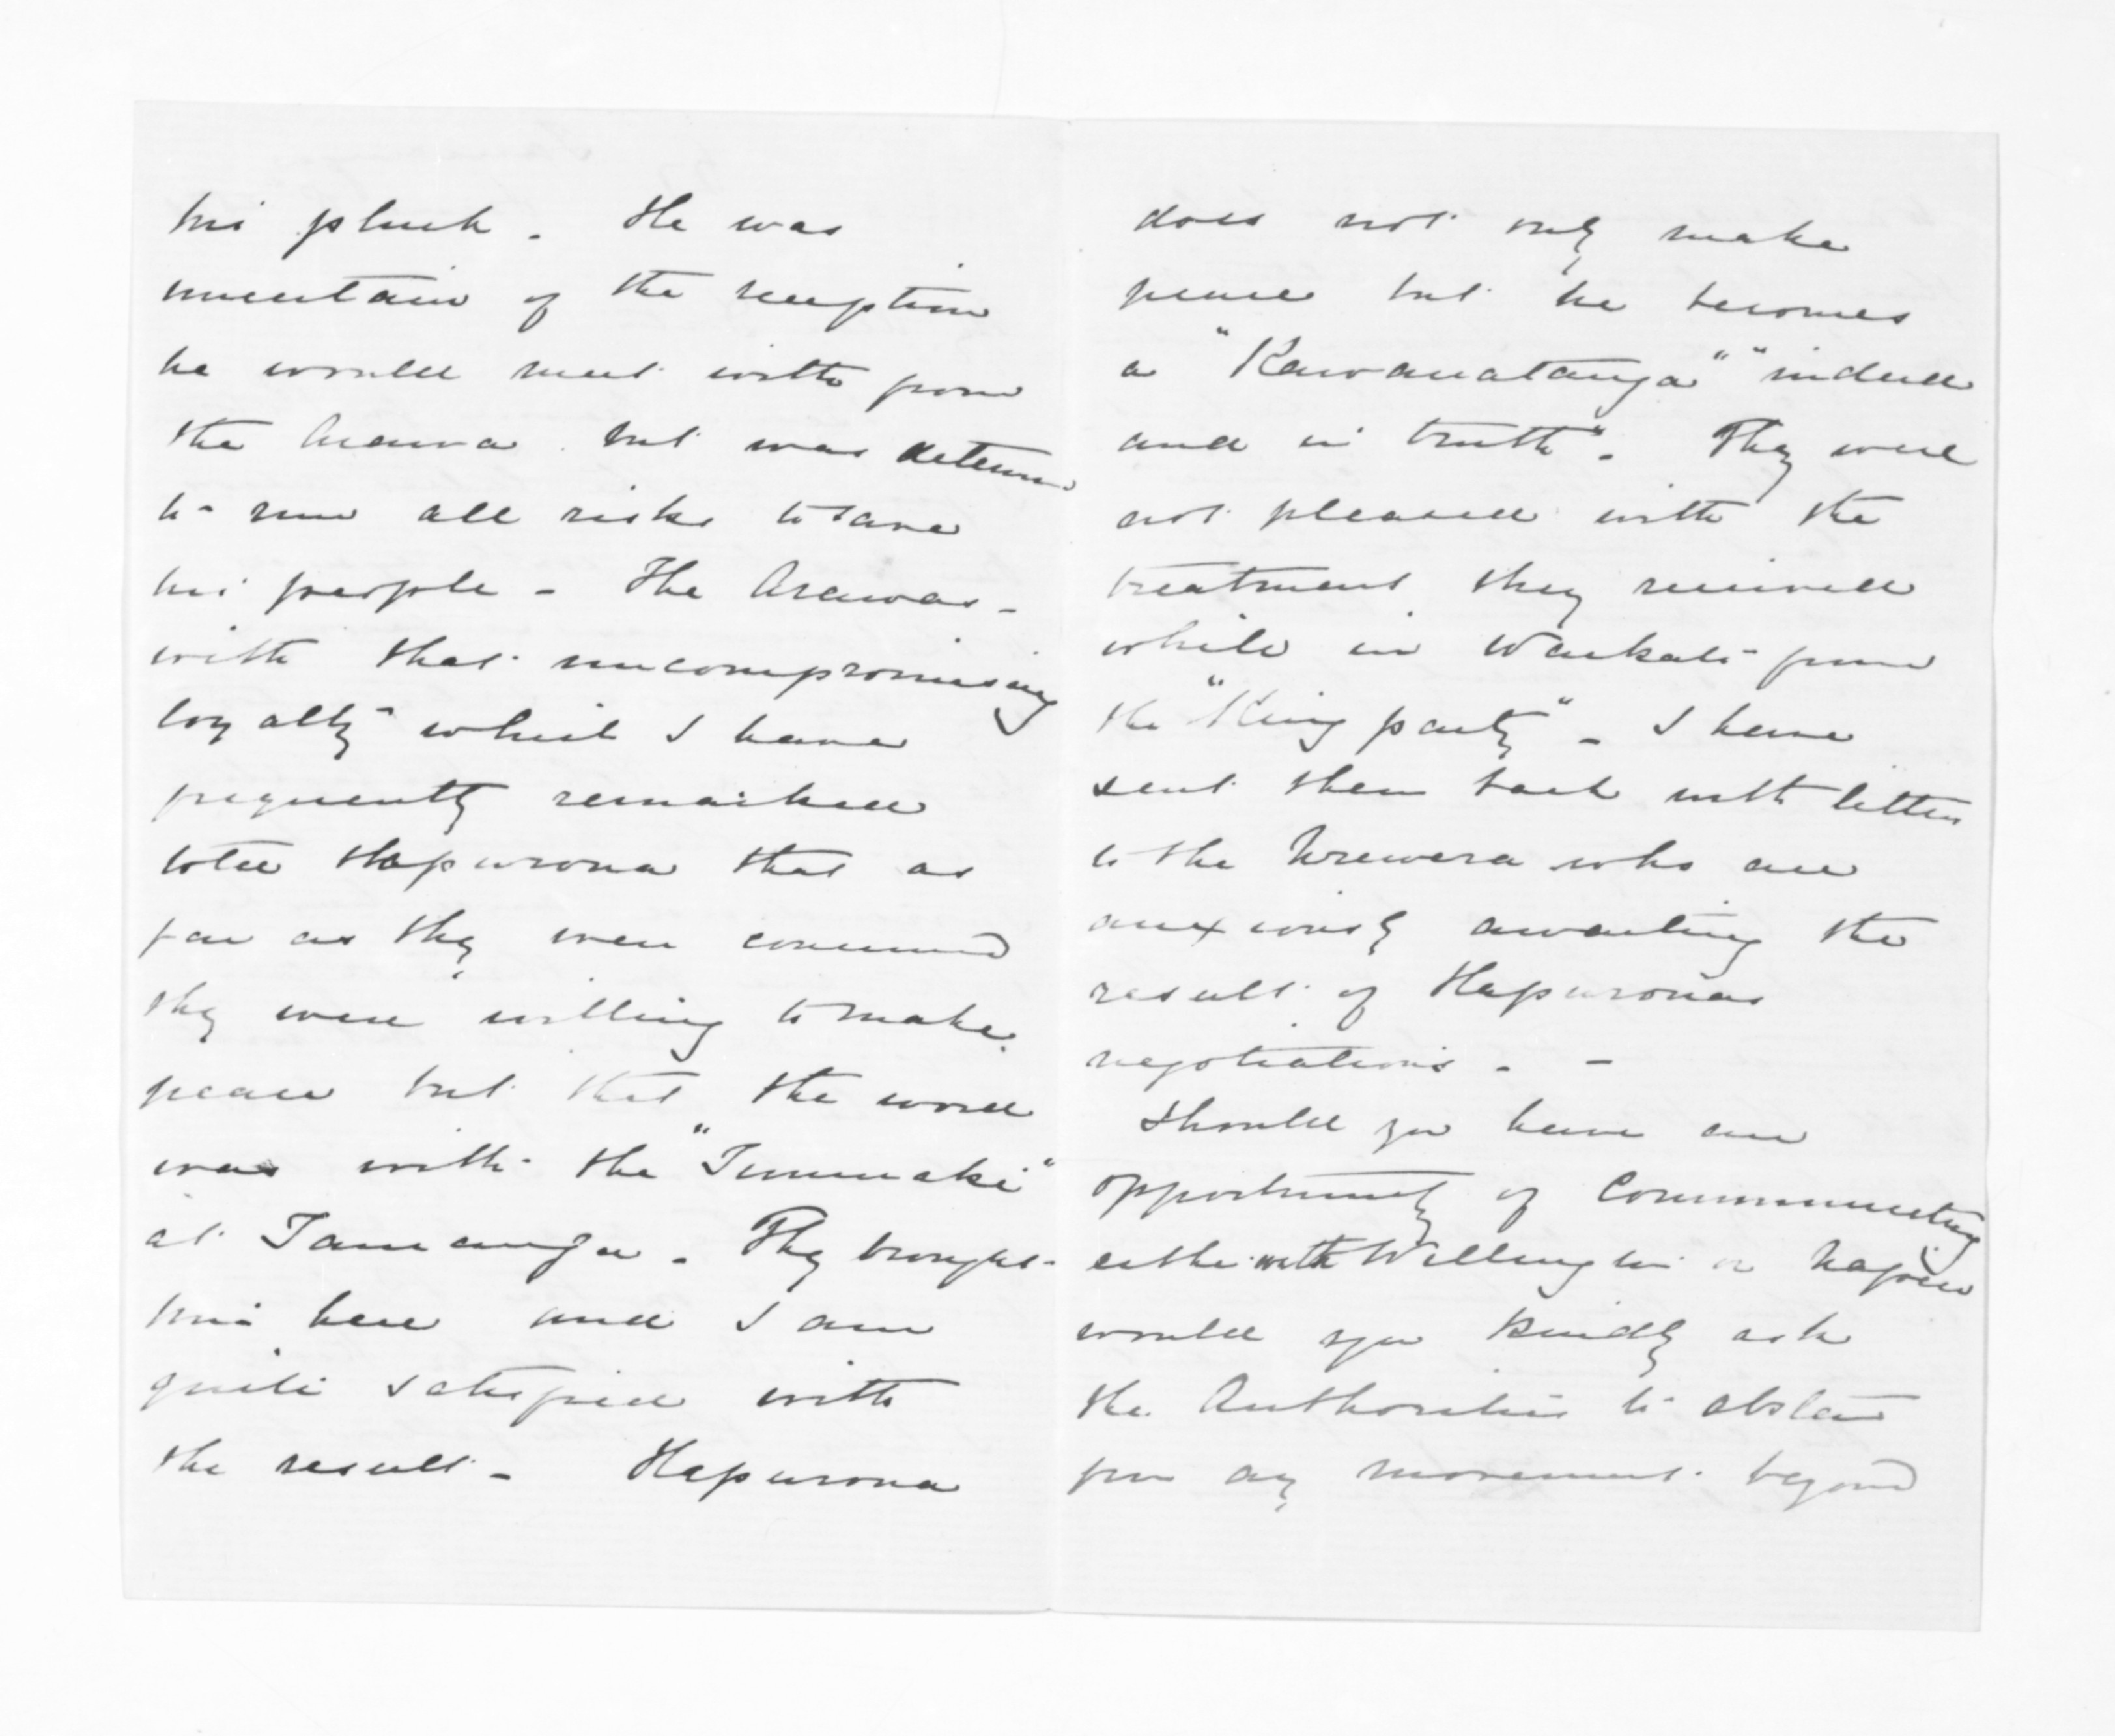 his pluck. He was
uncertain of the reception
he would meet with from
the Arawa but was determined
to run all risks to save
his people - The Arawas -
with that uncompromising
loyalty which I have
frequently remarked
told Hapurona that as
far as they were concerned
they were willing to make
peace but that the word
was with the "Tumuaki"
at Tauranga. They brought
him here and I am
quite satisfied with
the result - Hapurona
does not only make
peace but he becomes
a "Kawanatanga" "indeed
and in truth". They were
not pleased with the
treatment they received
while in Waikato from
the "King party" - I have
sent them back with letters
to the Urewera who are
anxiously awaiting the
result of Hapuronas
negotiations. -
Should you have an
opportunity of communicating
either with Wellington or Napier
would you kindly ask
the Authorities to abstain
from any movement beyond